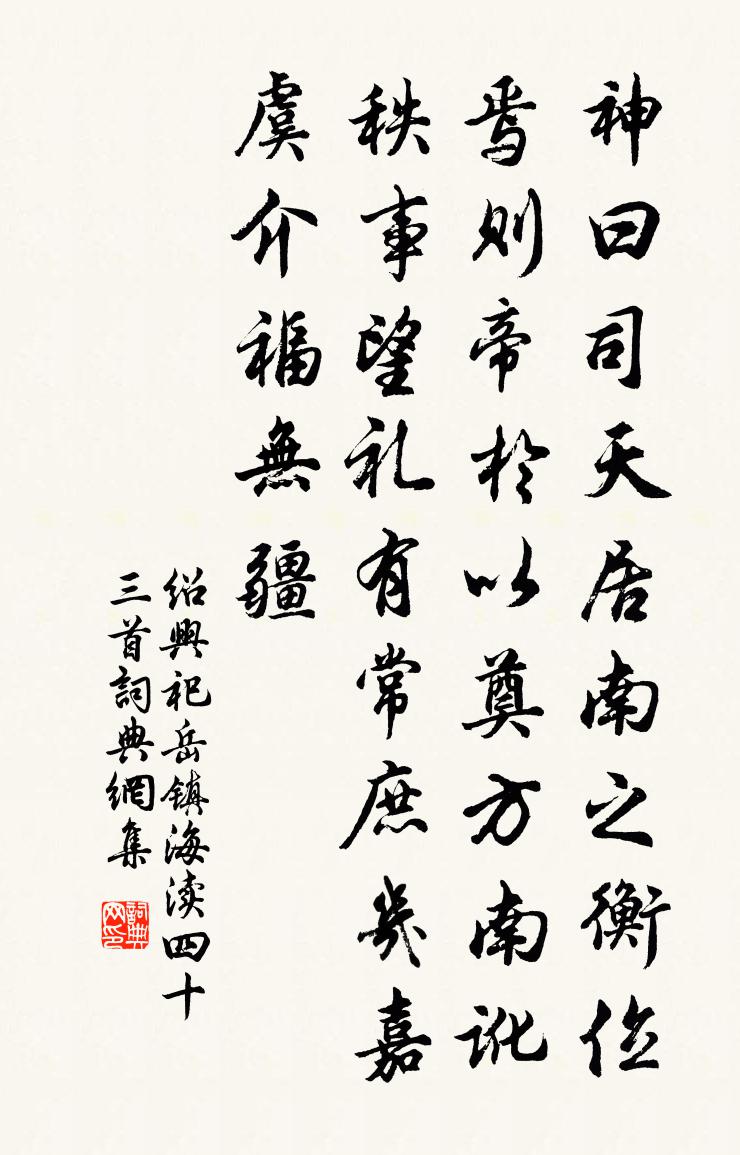 神曰司天居南之衡位
焉則帝於以奠方南訛
秩事望礼有常庶幾嘉
虞介福無疆
绍興祀岳鎮海渎四十
三首詞典網集
詞典
网印